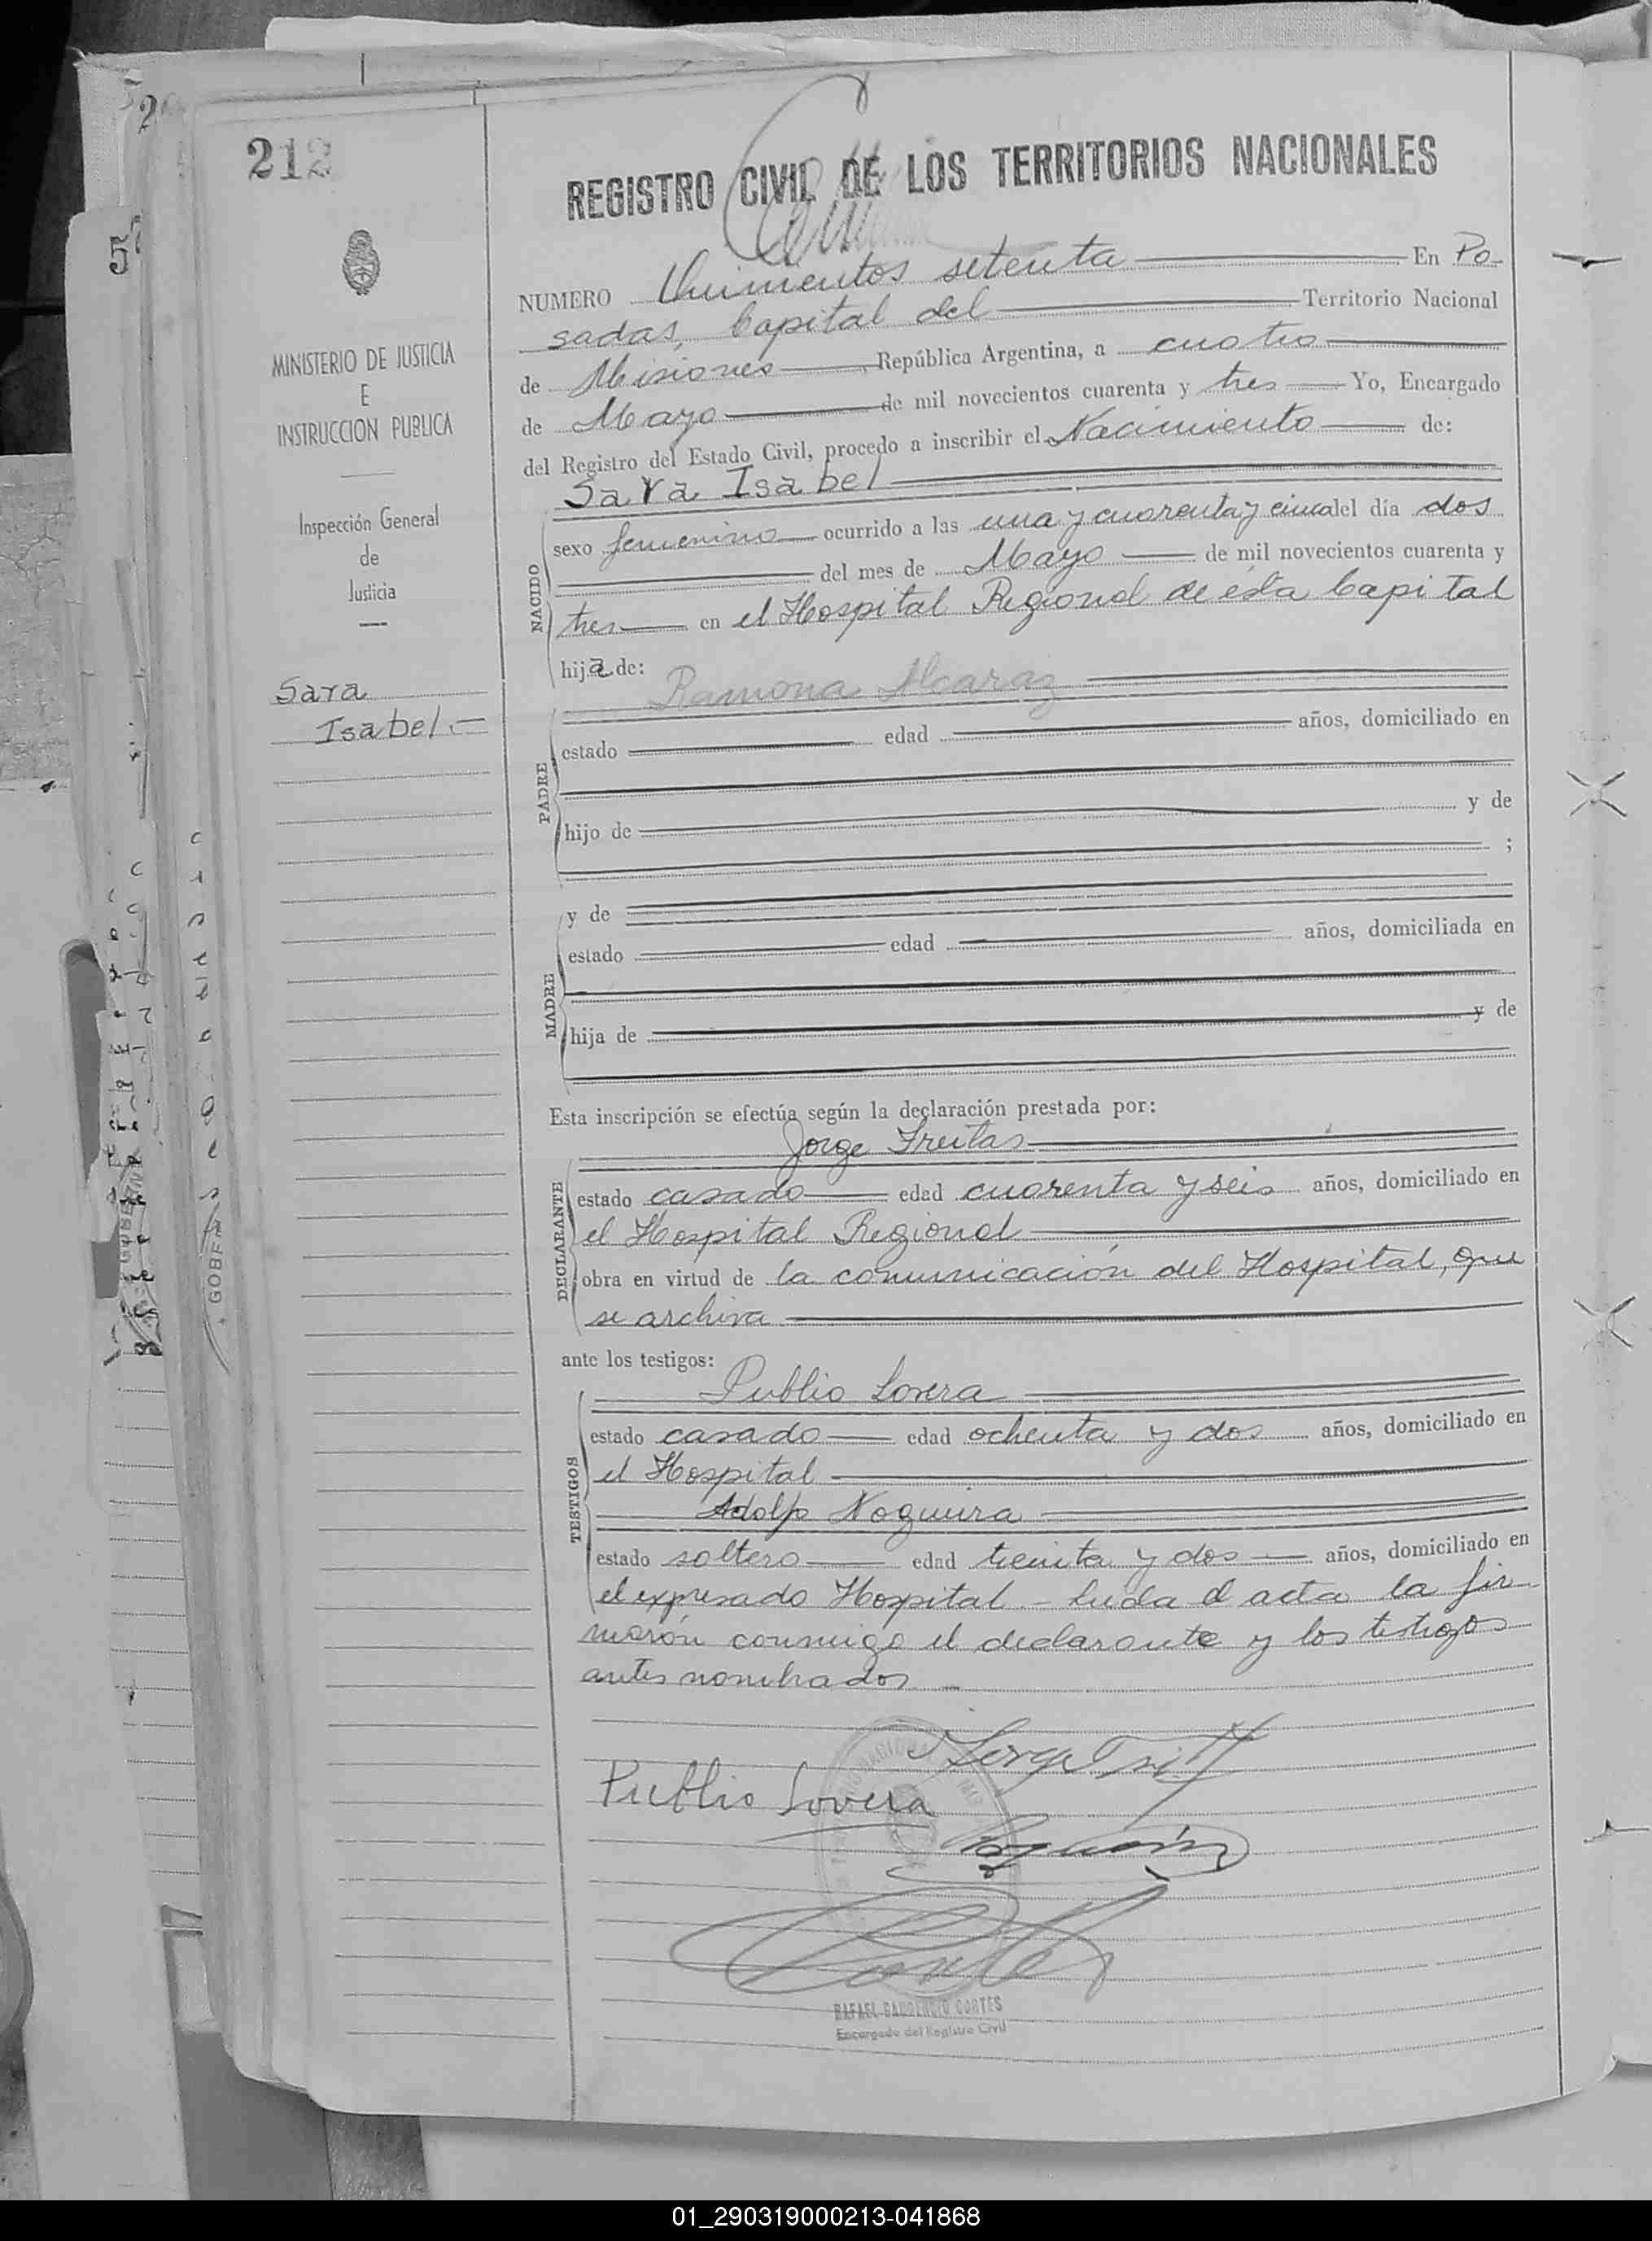 212
REGISTRO CIVIL DE LOS TERRITORIOS NACIONALES
MINISTERIO DE JUSTICIA
E
INSTRUCCION PUBLICA
Inspección General
de
Justicia
Sara
Isabel.-
NUMERO Quinientos setenta En Po-
sadas, Capital del Territorio Nacional
de Misiones República Argentina, a cuatro
de Mayo de mil novecientos cuarenta y tres Yo, Encargado
del Registro del Estado Civil, procedo a inscribir el Nacimiento de:
Sara Isabel
NACIDO
sexo femenino ocurrido a las una y cuarenta y cinco del día dos
del mes de Mayo de mil novecientos cuarenta y
tres en el Hospital Regional de esta Capital
hija de:
Ramona Alcaraz
PADRE
estado edad años, domiciliado en
hijo de y de
;
y de
MADRE
estado edad años, domiciliada en
hija de y de
Esta inscripción se efectúa según la declaración prestada por:
Jorge Freitas
DECLARANTE
estado casado edad cuarenta y seis años, domiciliado en
el Hospital Regional
obra en virtud de la comunicación del Hospital, que
se archiva
ante los testigos:
Publio Lovera
TESTIGOS
estado casado edad ochenta y dos años, domiciliado en
el Hospital
Adolfo Nogueira
estado soltero edad treinta y dos años, domiciliado en
el expresado Hospital - Leida el acta la fir
marón conmigo el declarante y los testigos
antes nombrados -
Publio Lovera
RAFAEL GAUDENCIO CORTES
Encargado del Registro Civil
01_290319000213-041868